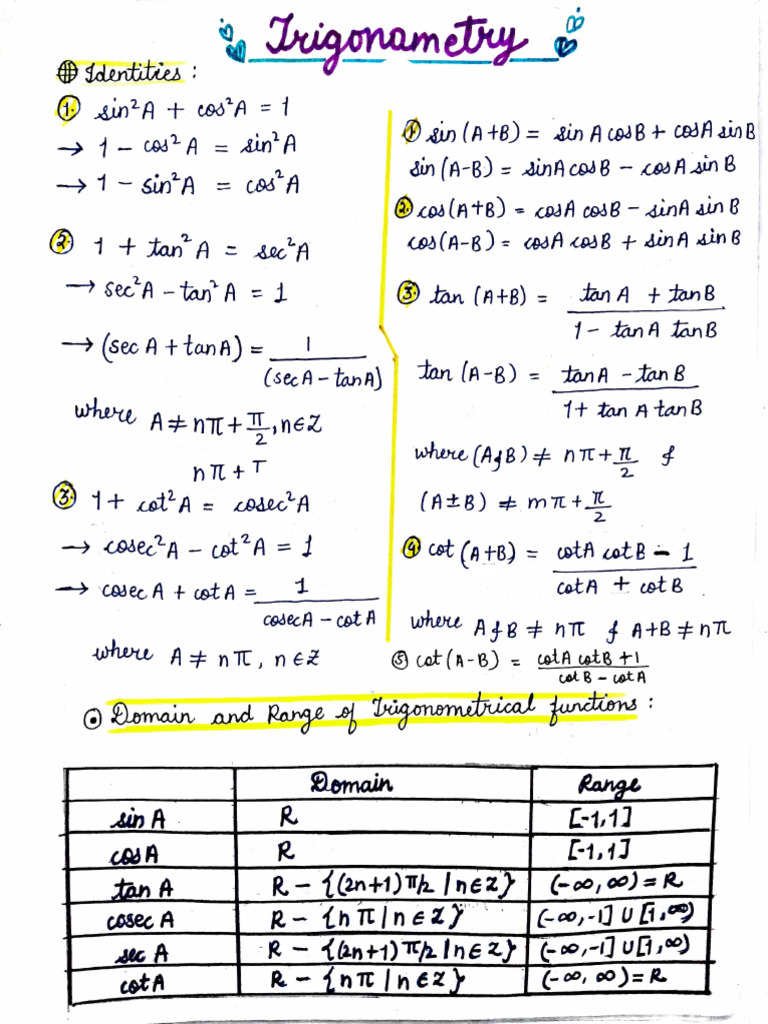 Trigonametry
Identities :
1. sin²A + cos²A = 1
→ 1 - cos²A = sin²A
→ 1 - sin²A = cos²A
2. 1 + tan²A = sec²A
→ sec²A - tan²A = 1
→ (sec A + tan A) = 1 / (sec A - tan A)
where A ≠ nπ + π/2, n∈Z
nπ + T
3. 1 + cot²A = cosec²A
→ cosec²A - cot²A = 1
→ cosec A + cot A = 1 / (cosec A - cot A)
where A ≠ nπ, n∈Z
1. sin (A+B) = sin A cos B + cos A sin B
sin (A-B) = sin A cos B - cos A sin B
2. cos (A+B) = cos A cos B - sin A sin B
cos (A-B) = cos A cos B + sin A sin B
3. tan (A+B) = (tan A + tan B) / (1 - tan A tan B)
tan (A-B) = (tan A - tan B) / (1 + tan A tan B)
where (A & B) ≠ nπ + π/2 &
(A ± B) ≠ mπ + π/2
4. cot (A+B) = (cot A cot B - 1) / (cot A + cot B)
where A & B ≠ nπ & A+B ≠ nπ
5 cot (A-B) = (cot A cot B + 1) / (cot B - cot A)
Domain and Range of Trigonometrical functions :
Domain Range
sin A R [-1,1]
cos A R [-1,1]
tan A R - {(2n+1) π/2 | n∈Z} (-∞, ∞) = R
cosec A R - {nπ | n∈Z} (-∞, -1] U [1, ∞)
sec A R - {(2n+1) π/2 | n∈Z} (-∞, -1] U [1, ∞)
cot A R - {nπ | n∈Z} (-∞, ∞) = R